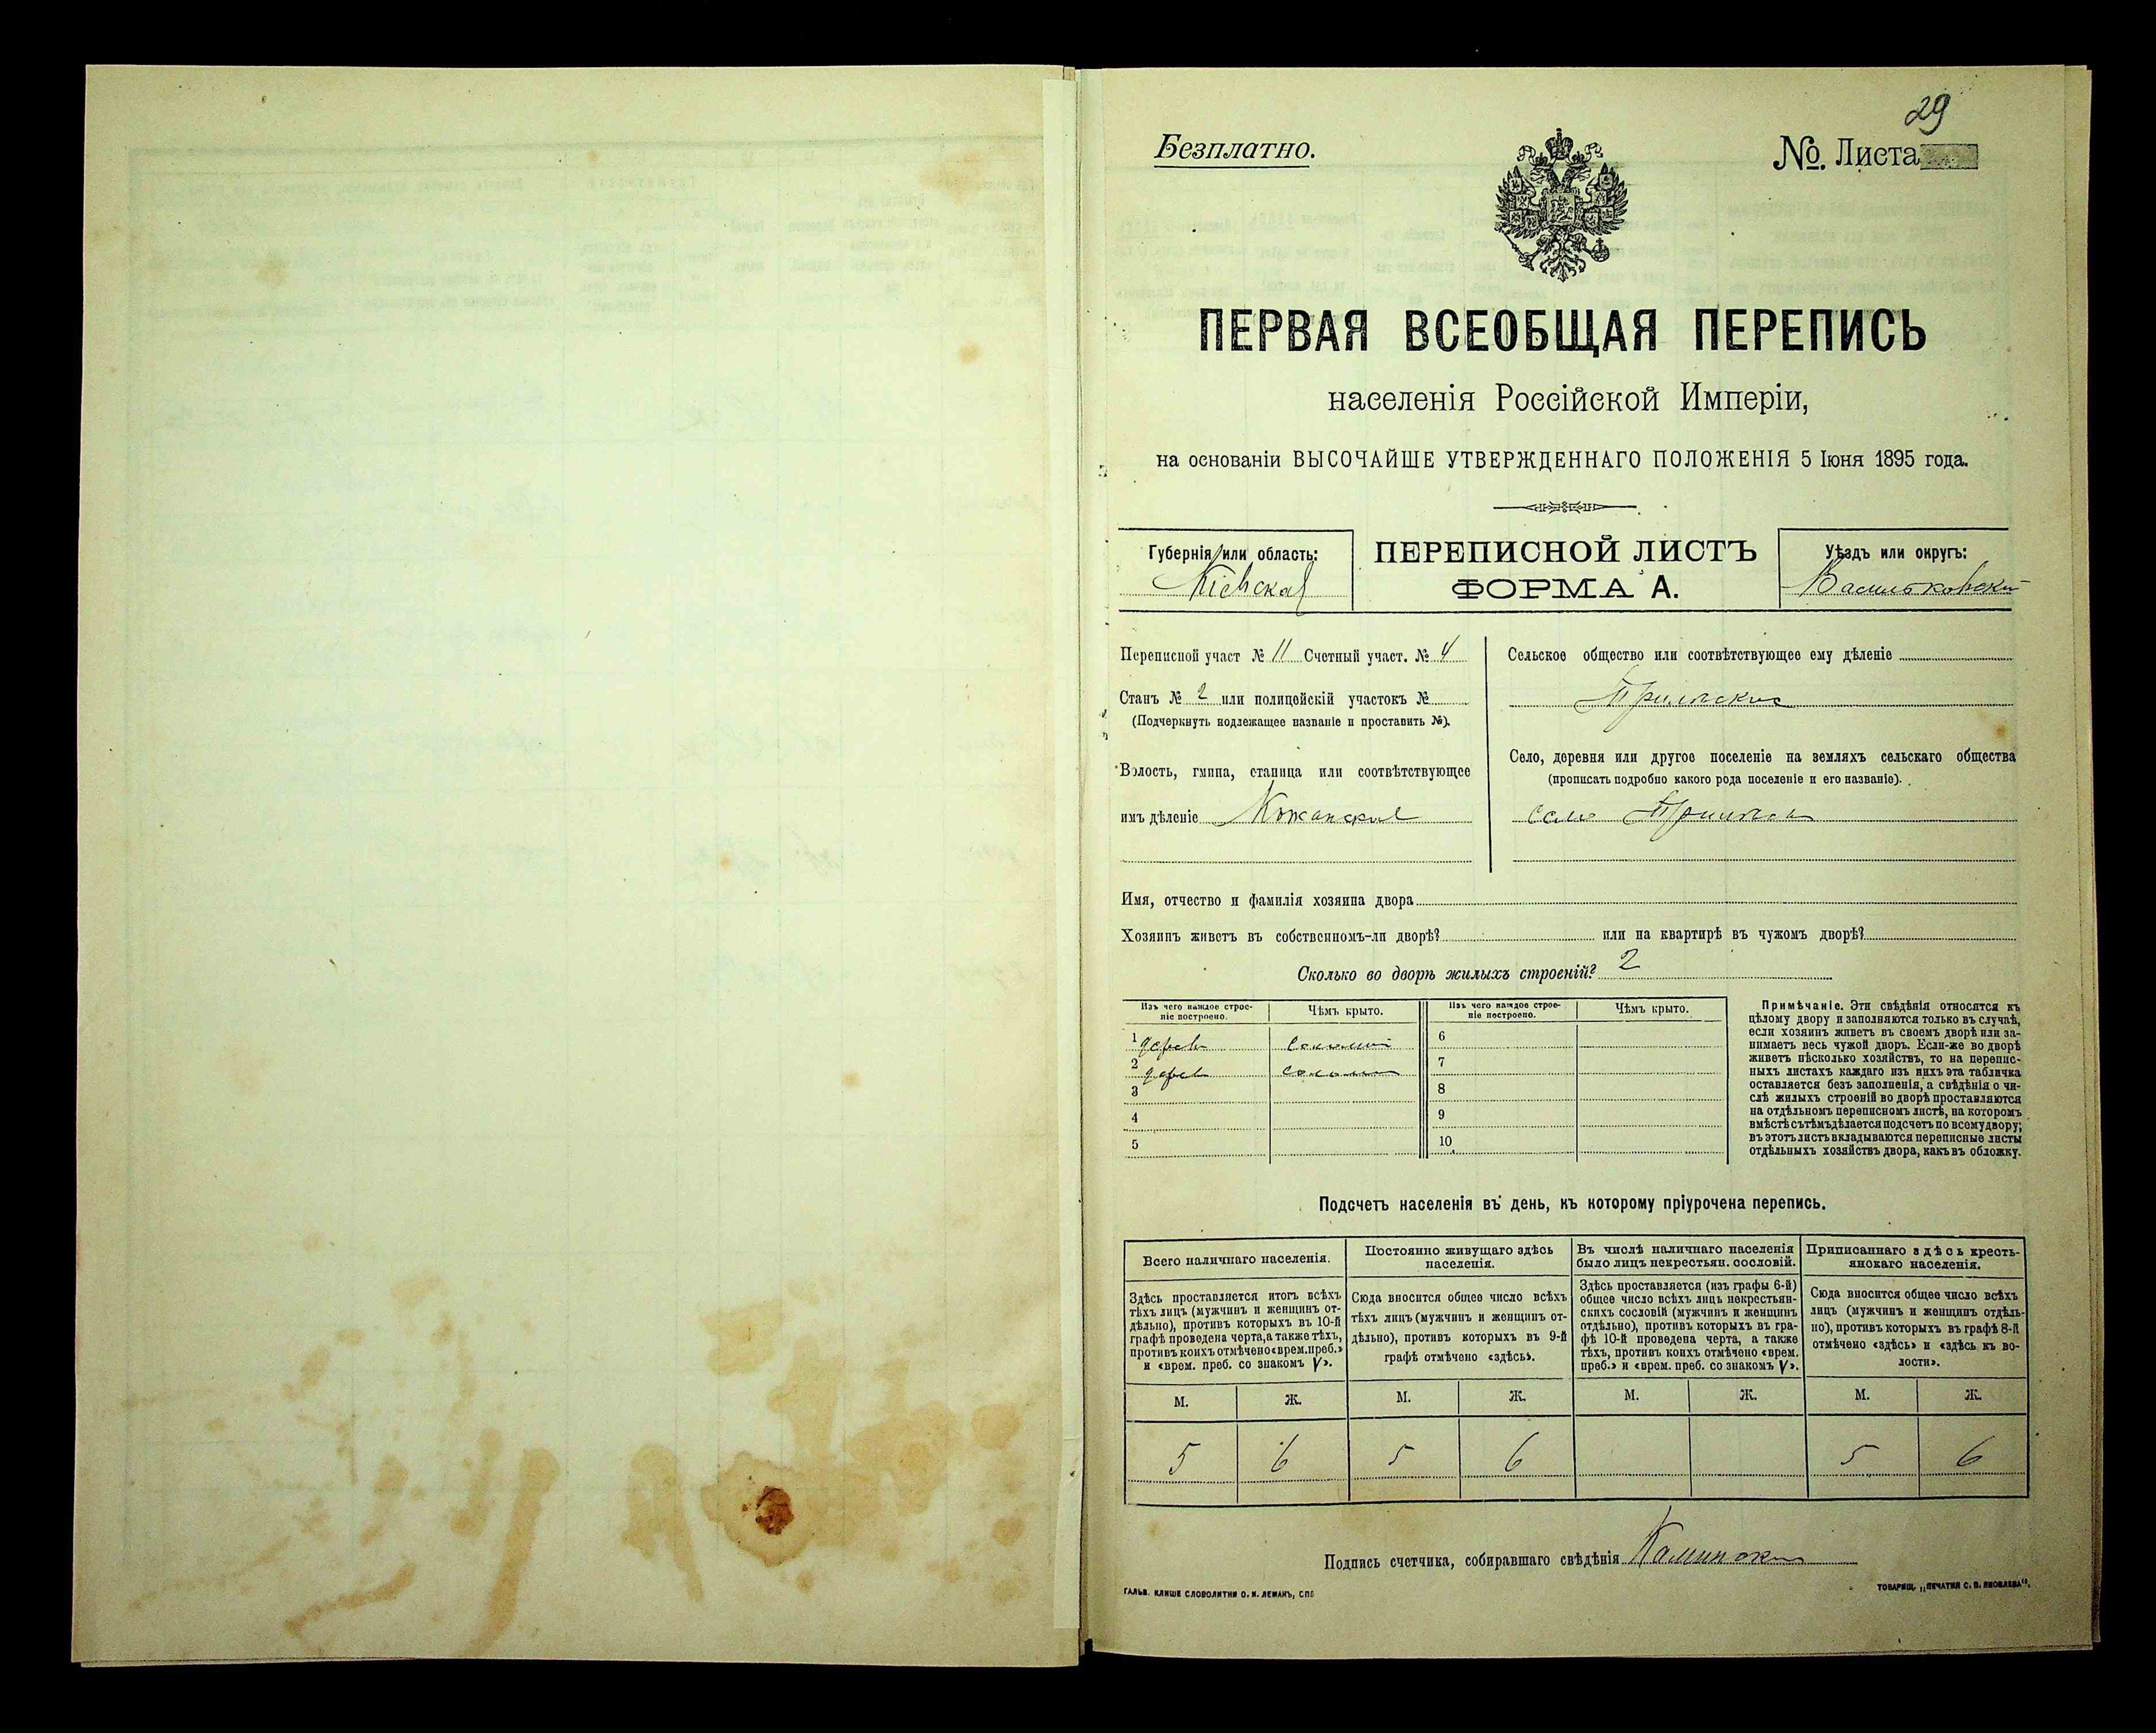 29
Безплатно.
№. Листа
ПЕРВАЯ ВСЕОБЩАЯ ПЕРЕПИСЬ
населенія Россійской Имперіи,
на основаніи ВЫСОЧАЙШЕ УТВЕРЖДЕННАГО ПОЛОЖЕНІЯ 5 Іюня 1895 года.
Губернія или область:
Кіевская
ПЕРЕПИСНОЙ ЛИСТЪ
ФОРМА А.
Уѣздъ или округъ:
Васильковскій
Переписной участ № 11 Счетный участ. № 4
Станъ № 2 или полицейскій участокъ №
(Подчеркнуть подлежащее названіе и проставить №).
Волость, гмина, станица или соотвѣтствующее
имъ дѣленіе Кожанская
Сельское общество или соотвѣтствующее ему дѣленіе
Село, деревня или другое поселеніе на земляхъ сельскаго общества
(прописать подробно какого рода поселеніе и его названіе).
село
Имя, отчество и фамилія хозяина двора
Хозяинъ живетъ въ собственномъ-ли дворѣ? или на квартирѣ въ чужомъ дворѣ?
Сколько во дворѣ жилыхъ строеній? 2
Изъ чего каждое строе-
ніе построено.
Чѣмъ крыто.
1 дерев
2 дерев
3
4
5
Изъ чего каждое строе-
ніе построено.
Чѣмъ крыто.
6
7
8
9
10
Примѣчаніе. Эти свѣдѣнія относятся къ
цѣлому двору и заполняются только въ случаѣ,
если хозяинъ живетъ въ своемъ дворѣ или за-
нимаетъ весь чужой дворъ. Если-же во дворѣ
живетъ нѣсколько хозяйствъ, то на перепис-
ныхъ листахъ каждаго изъ нихъ эта табличка
оставляется безъ заполненія, а свѣдѣнія о чи-
слѣ жилыхъ строеній во дворѣ проставляются
на отдѣльномъ переписномъ листѣ, на которомъ
вмѣстѣ съ тѣмъ дѣлается подсчетъ по всему двору;
въ этотъ листъ вкладываются переписные листы
отдѣльныхъ хозяйствъ двора, какъ въ обложку.
Подсчетъ населенія въ день, къ которому пріурочена перепись.
Всего наличнаго населенія.
Здѣсь проставляется итогъ всѣхъ
тѣхъ лицъ (мужчинъ и женщинъ от-
дѣльно), противъ которыхъ въ 10-й
графѣ проведена черта, а также тѣхъ,
противъ коихъ отмѣчено «врем. преб.»
и «врем. преб. со знакомъ V».
М. Ж.
5 6
Постоянно живущаго здѣсь
населенія.
Сюда вносится общее число всѣхъ
тѣхъ лицъ (мужчинъ и женщинъ от-
дѣльно), противъ которыхъ въ 9-й
графѣ отмѣчено «здѣсь».
М. Ж.
5 6
Въ числѣ наличнаго населенія
было лицъ некрестьян. сословій.
Здѣсь проставляется (изъ графы 6-й)
общее число всѣхъ лицъ некрестьян-
скихъ сословій (мужчинъ и женщинъ
отдѣльно), противъ которыхъ въ гра-
фѣ 10-й проведена черта, а также
тѣхъ, противъ коихъ отмѣчено «врем.
преб.» и «врем. преб. со знакомъ V».
М. Ж.
Приписаннаго здѣсь кресть-
янскаго населенія.
Сюда вносится общее число всѣхъ
лицъ (мужчинъ и женщинъ отдѣль-
но), противъ которыхъ въ графѣ 8-й
отмѣчено «здѣсь» и «здѣсь къ во-
лости».
М. Ж.
5 6
Подпись счетчика, собиравшаго свѣдѣнія
ГАЛЬВ. КЛИШЕ СЛОВОЛИТНИ О. И. ЛЕМАНЪ, СПБ
ТОВАРИЩ. „ПЕЧАТНЯ С. П. ЯКОВЛЕВА“.